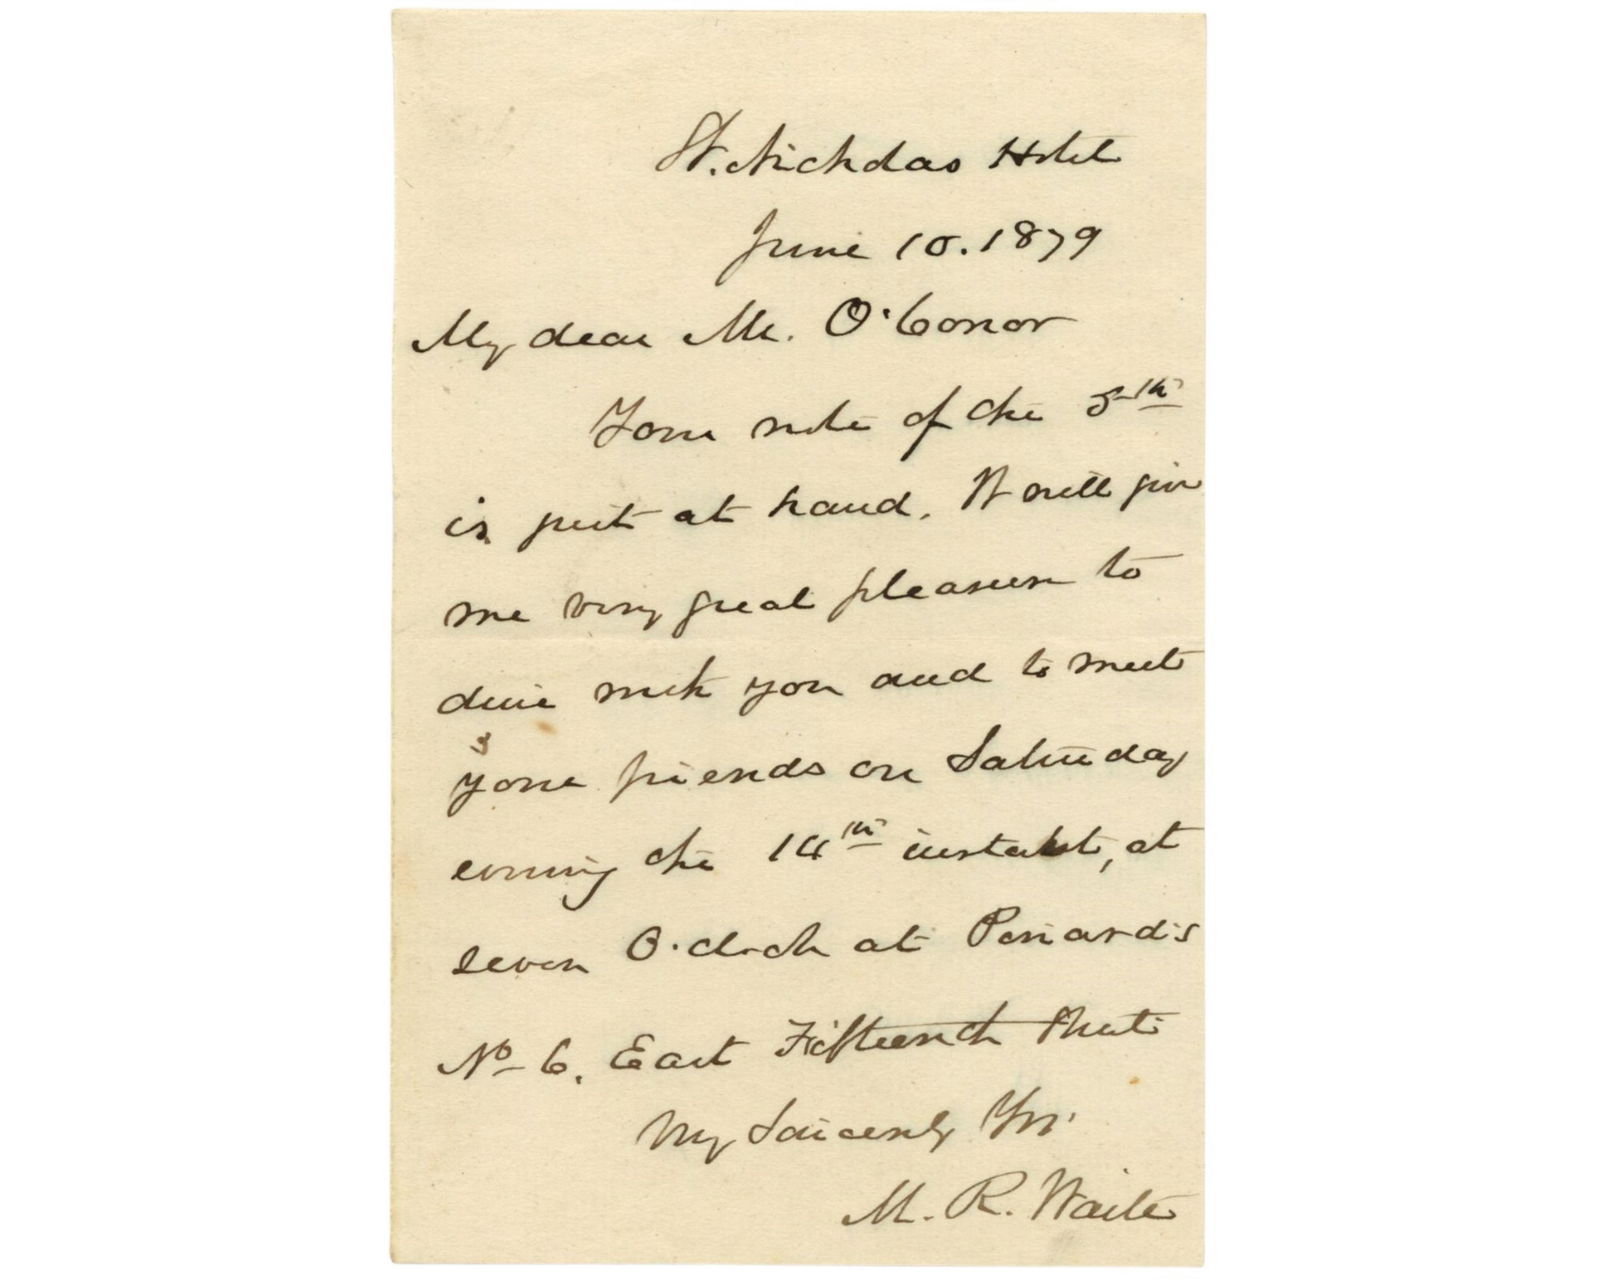 St. Nicholas Hotel
June 10. 1879
My dear Mr. O'Conor
Your note of the 5th
is just at hand. It will give
me very great pleasure to
dine with you and to meet
your friends on Saturday
evening the 14th instant, at
seven O'clock at
No 6. East Fifteenth Street
Very Sincerely Yrs.
M. R. Waite